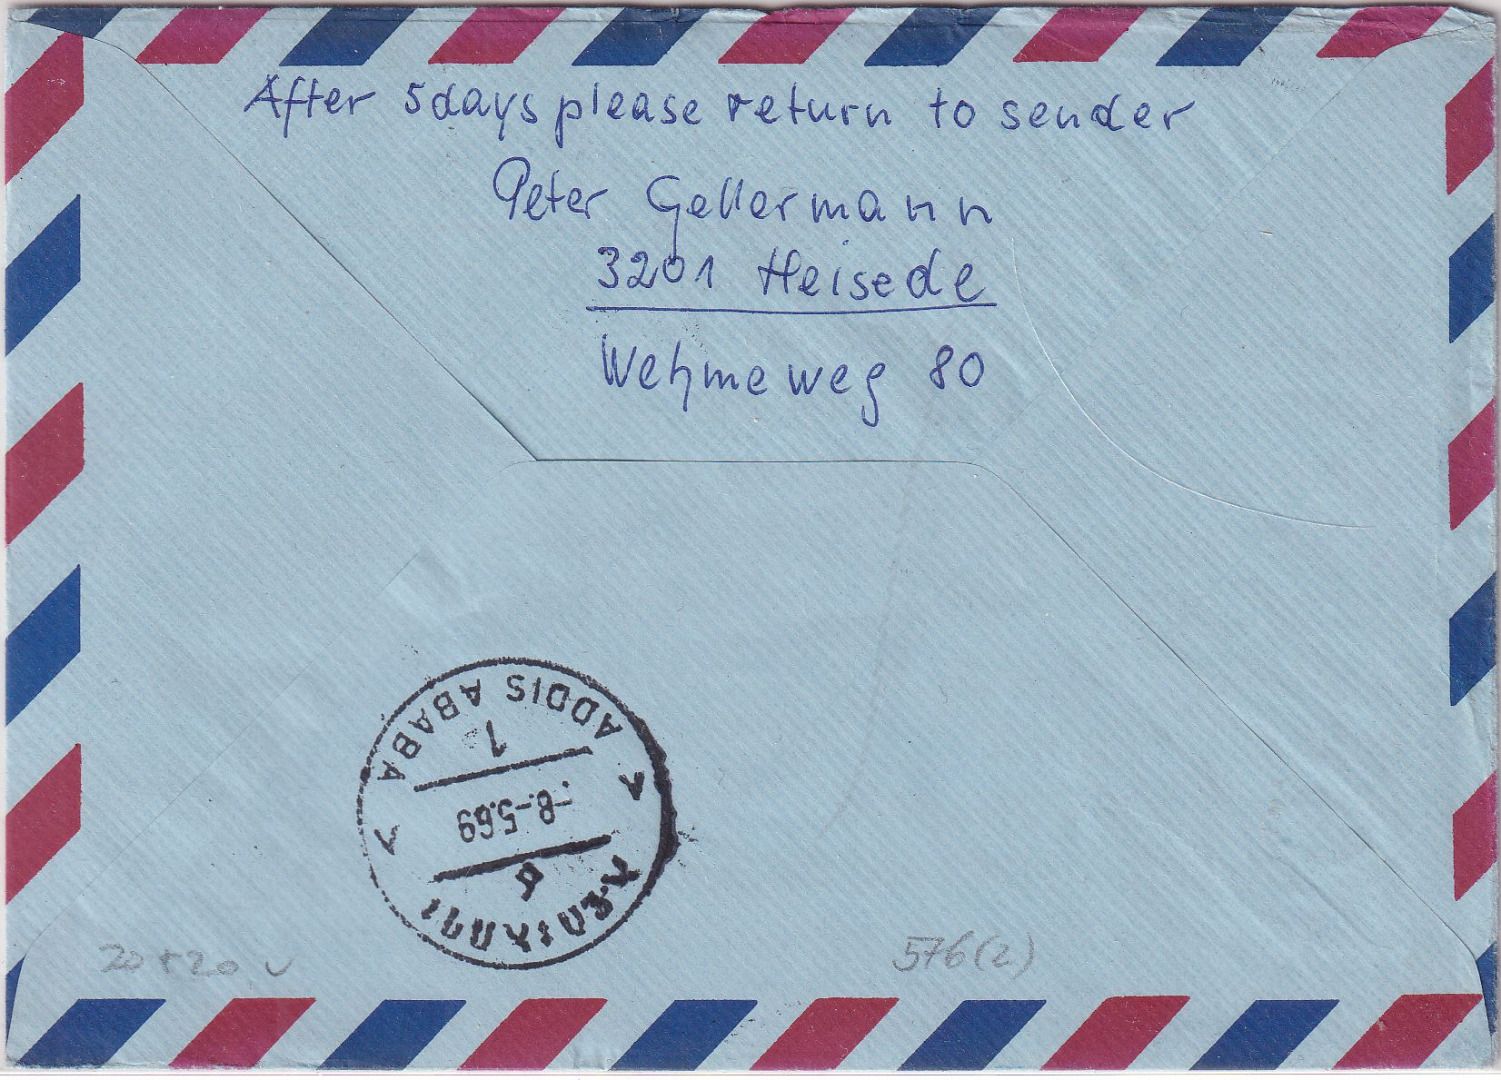 After 5 days please return to sender
Peter Gellermann
3201 Heisede
Wehmeweg 80
ADDIS ABABA
1
-8.-5.69
አዲስ አበባ
20+20
576(2)